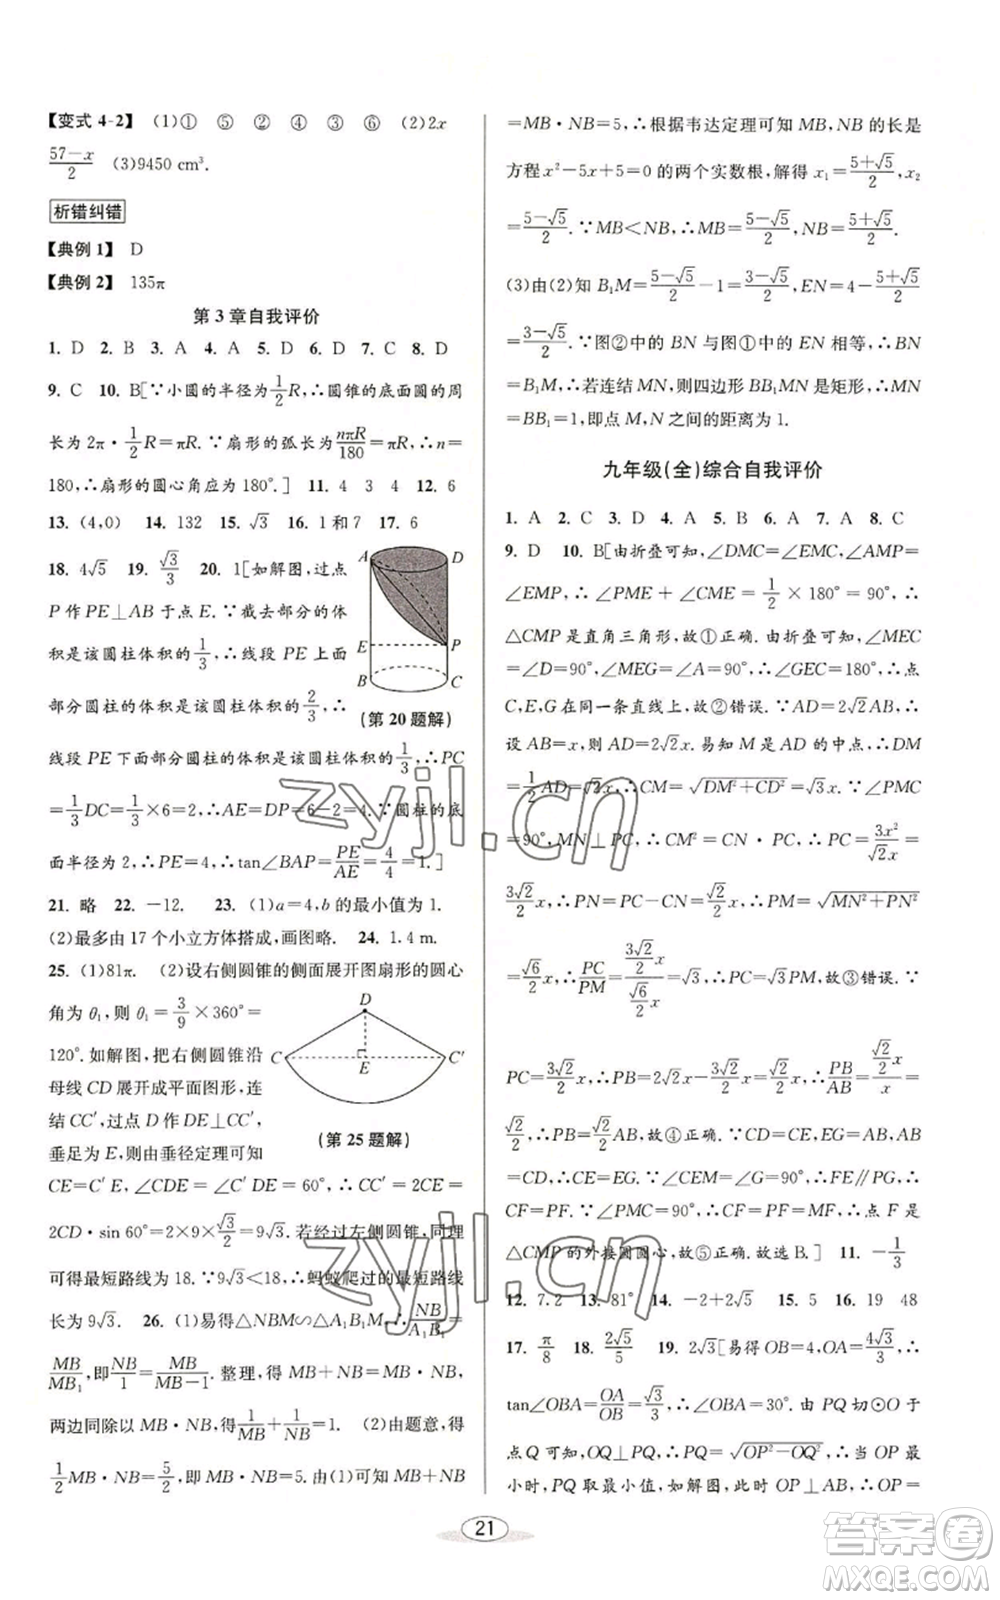 【变式 4-2】 (1)① ⑤ ② ④ ③ ⑥ (2)2x
57-x/2 (3)9450 cm³.
析错纠错
【典例 1】 D
【典例 2】 135π
第 3 章自我评价
1. D 2. B 3. A 4. A 5. D 6. D 7. C 8. D
9. C 10. B[∵小圆的半径为1/2R,∴圆锥的底面圆的周
长为 2π·1/2R=πR.∵扇形的弧长为nπR/180=πR,∴n=
180,∴扇形的圆心角应为 180°.] 11. 4 3 4 12. 6
13. (4,0) 14. 132 15. √3 16. 1 和 7 17. 6
18. 4√5 19. √3/3 20. 1[如解图,过点
P 作 PE⊥AB 于点 E.∵截去部分的体
积是该圆柱体积的1/3,∴线段 PE 上面
部分圆柱的体积是该圆柱体积的2/3,∴
A D E P B C
(第 20 题解)
线段 PE 下面部分圆柱的体积是该圆柱体积的1/3,∴PC
=1/3DC=1/3×6=2,∴AE=DP=6-2=4.∵圆柱的底
面半径为 2,∴PE=4,∴tan∠BAP=PE/AE=4/4=1.]
21. 略 22. -12. 23. (1)a=4,b 的最小值为 1.
(2)最多由 17 个小立方体搭成,画图略. 24. 1.4 m.
25. (1)81π. (2)设右侧圆锥的侧面展开图扇形的圆心
角为 θ₁,则 θ₁=3/9×360°=
120°.如解图,把右侧圆锥沿
母线 CD 展开成平面图形,连
结 CC′,过点 D 作 DE⊥CC′,
垂足为 E,由垂径定理可知
D C E C′
(第 25 题解)
CE=C′E,∠CDE=∠C′DE=60°,∴CC′=2CE=
2CD·sin 60°=2×9×√3/2=9√3.若经过左侧圆锥,同理
可得最短路线为 18.∵9√3<18,∴蚂蚁爬过的最短路线
长为 9√3. 26. (1)易得△NBM∽△A₁B₁M,∴NB/A₁B₁=
MB/MB₁,即NB/1=MB/(MB-1).整理,得 MB+NB=MB·NB,
两边同除以 MB·NB,得1/NB+1/MB=1. (2)由题意,得
1/2MB·NB=5/2,即 MB·NB=5.由(1)可知 MB+NB
=MB·NB=5,∴根据韦达定理可知 MB,NB 的长是
方程 x²-5x+5=0 的两个实数根,解得 x₁=(5+√5)/2,x₂
=(5-√5)/2.∵MB<NB,∴MB=(5-√5)/2,NB=(5+√5)/2.
(3)由(2)知 B₁M=(5-√5)/2-1=(3-√5)/2,EN=4-(5+√5)/2
=(3-√5)/2.∵图②中的 BN 与图①中的 EN 相等,∴BN
=B₁M,∴若连结 MN,则四边形 BB₁MN 是矩形,∴MN
=BB₁=1,即点 M,N 之间的距离为 1.
九年级(全)综合自我评价
1. A 2. C 3. D 4. A 5. C 6. A 7. A 8. C
9. D 10. B[由折叠可知,∠DMC=∠EMC,∠AMP=
∠EMP,∴∠PME+∠CME=1/2×180°=90°,∴
△CMP 是直角三角形,故①正确.由折叠可知,∠MEC
=∠D=90°,∠MEG=∠A=90°,∴∠GEC=180°,∴点
C,E,G 在同一条直线上,故②错误.∵AD=2√2AB,∴
设 AB=x,则 AD=2√2x.易知 M 是 AD 的中点,∴DM
=1/2AD=√2x,∴CM=√(DM²+CD²)=√3x.∵∠PMC
=90°,MN⊥PC,∴CM²=CN·PC,∴PC=3x²/√2x=
3√2/2x,∴PN=PC-CN=√2/2x,∴PM=√(MN²+PN²)
=√6/2x,∴PC/PM=(3√2/2x)/(√6/2x)=√3,∴PC=√3PM,故③错误.∵
PC=3√2/2x,∴PB=2√2x-3√2/2x=√2/2x,∴PB/AB=(√2/2x)/x=
√2/2,∴PB=√2/2AB,故④正确.∵CD=CE,EG=AB,AB
=CD,∴CE=EG.∵∠CEM=∠G=90°,∴FE∥PG,∴
CF=PF.∵∠PMC=90°,∴CF=PF=MF,∴点 F 是
△CMP 的外接圆圆心,故⑤正确.故选 B.] 11. -1/3
12. 7.2 13. 81° 14. -2+2√5 15. 5 16. 19 48
17. π/8 18. 2√5/5 19. 2√3[易得 OB=4,OA=4√3/3,∴
tan∠OBA=OA/OB=√3/3,∴∠OBA=30°.由 PQ 切⊙O 于
点 Q 可知,OQ⊥PQ,∴PQ=√(OP²-OQ²),∴当 OP 最
小时,PQ 取最小值,如解图,此时 OP⊥AB,∴OP=
21
zyjl.cn
zyjl.cn
答案圈
MXQE.COM